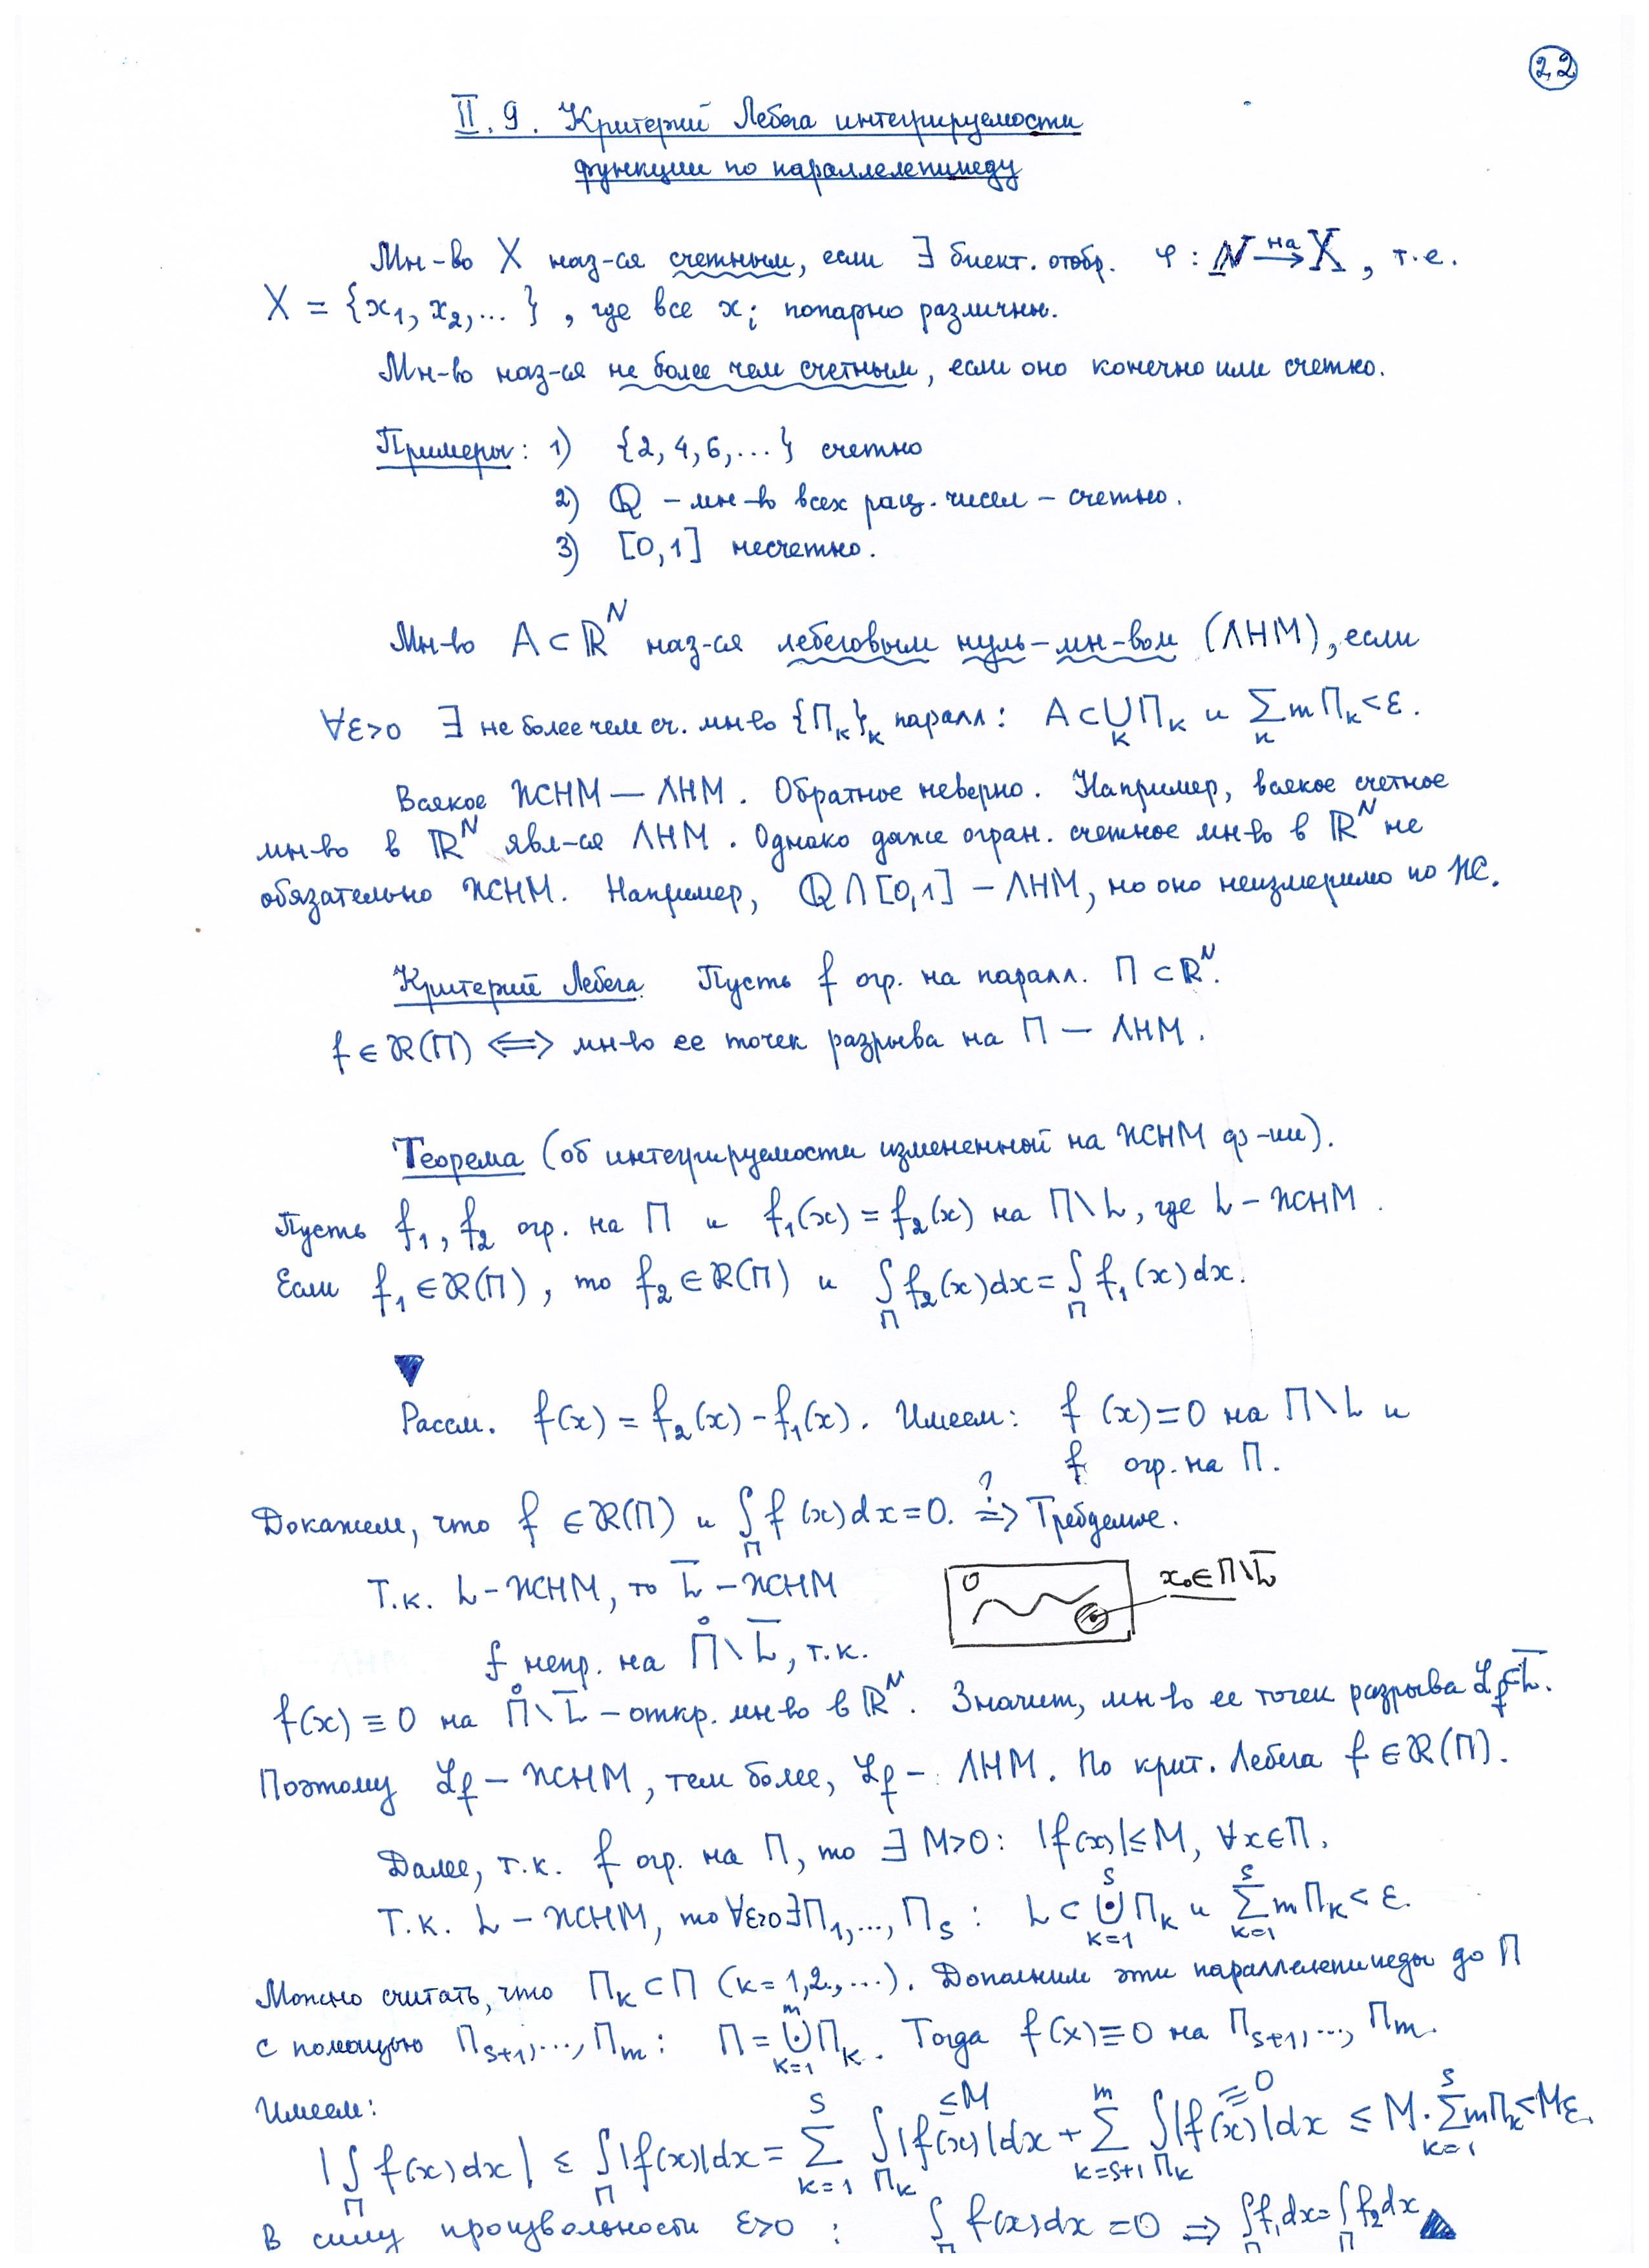 22
II.9. Критерий Лебега интегрируемости
функции по параллелепипеду
Мн-во X наз-ся счетным, если ∃ биект. отобр. φ: N →(на) X, т.е.
X = {x₁, x₂,...}, где все xᵢ попарно различны.
Мн-во наз-ся не более чем счетным, если оно конечно или счетно.
Примеры: 1) {2, 4, 6,...} счетно
2) ℚ – мн-во всех рац. чисел – счетно.
3) [0,1] несчетно.
Мн-во A ⊂ ℝᴺ наз-ся лебеговым нуль-мн-вом (ЛНМ), если
∀ε>0 ∃ не более чем сч. мн-во {Πₖ}ₖ паралл: A ⊂ ⋃ₖ Πₖ и ∑ₖ mΠₖ < ε.
Всякое ЖСНМ — ЛНМ. Обратное неверно. Например, всякое счетное
мн-во в ℝᴺ явл-ся ЛНМ. Однако даже огран. счетное мн-во в ℝᴺ не
обязательно ЖСНМ. Например, ℚ ∩ [0,1] – ЛНМ, но оно неизмеримо по ЖС.
Критерий Лебега. Пусть f огр. на паралл. Π ⊂ ℝᴺ.
f ∈ ℛ(Π) ⟺ мн-во ее точек разрыва на Π — ЛНМ.
Теорема (об интегрируемости измененной на ЖСНМ ф-ии).
Пусть f₁, f₂ огр. на Π и f₁(x) = f₂(x) на Π\L, где L – ЖСНМ.
Если f₁ ∈ ℛ(Π), то f₂ ∈ ℛ(Π) и ∫_Π f₂(x)dx = ∫_Π f₁(x)dx.
▼
Рассм. f(x) = f₂(x) - f₁(x). Имеем: f(x) = 0 на Π\L и
f огр. на Π.
Докажем, что f ∈ ℛ(Π) и ∫_Π f(x)dx = 0. ⇒(?) Требуемое.
Т.к. L – ЖСНМ, то L̅ – ЖСНМ
0 x₀ ∈ Π\L̅
f непр. на Π̊\L̅, т.к.
f(x) ≡ 0 на Π̊\L̅ – откр. мн-во в ℝᴺ. Значит, мн-во ее точек разрыва ℒ_f ⊂ L̅.
Поэтому ℒ_f – ЖСНМ, тем более, ℒ_f – ЛНМ. По крит. Лебега f ∈ ℛ(Π).
Далее, т.к. f огр. на Π, то ∃ M>0: |f(x)| ≤ M, ∀x∈Π.
Т.к. L – ЖСНМ, то ∀ε>0 ∃Π₁,..., Πₛ: L ⊂ ⨃ₖ₌₁ˢ Πₖ и ∑ₖ₌₁ˢ mΠₖ < ε.
Можно считать, что Πₖ ⊂ Π (k = 1,2,...). Дополним эти параллелепипеды до Π
с помощью Πₛ₊₁,..., Πₘ: Π = ⨃ₖ₌₁ᵐ Πₖ. Тогда f(x) ≡ 0 на Πₛ₊₁,..., Πₘ.
Имеем:
|∫_Π f(x)dx| ≤ ∫_Π |f(x)|dx = ∑ₖ₌₁ˢ ∫_Πₖ |f(x)|(≤M) dx + ∑ₖ₌ₛ₊₁ᵐ ∫_Πₖ |f(x)|(≡0) dx ≤ M·∑ₖ₌₁ˢ mΠₖ < Mε.
В силу произвольности ε>0 : ∫_Π f(x)dx = 0 ⇒ ∫_Π f₁dx = ∫_Π f₂dx ▲